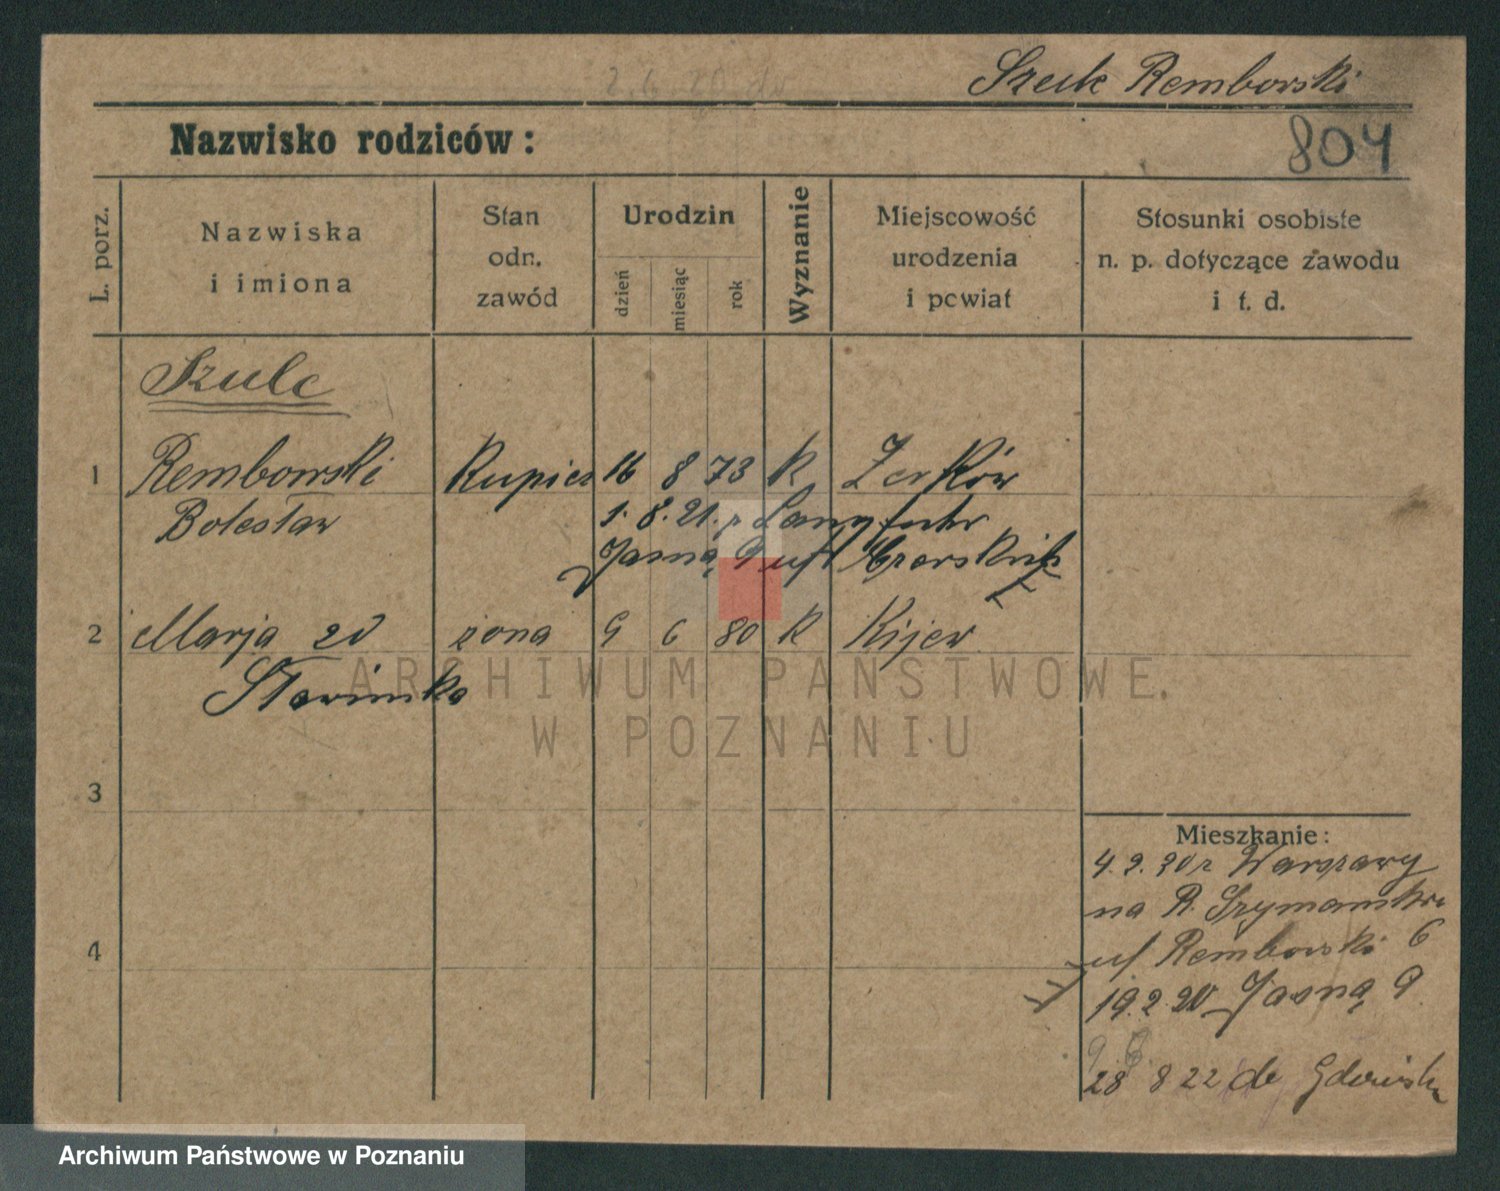 Szulc Remborski
Nazwisko rodziców:
804
L. porz.
Nazwiska
i imiona
Stan
odn.
zawód
Urodzin
dzień
miesiąc
rok
Wyznanie
Miejscowość
urodzenia
i powiat
Stosunki osobiste
n. p. dotyczące zawodu
i t. d.
Szulc
1 Rembowski Kupiec 16 8 73 K Żerków
Bolesław 1. 8. 21. z Langfuhr
Jasna 9 uf
2 Marja zd żona 9 6 80 K Kijew
ARCHIWUM PAŃSTWOWE
W POZNANIU
3
Mieszkanie:
4. 2. 20 z Warszawy
na R. Szymański
4
uf Remborski 6
19. 2. 20 Jasna 9
28 8 22 do Gdańska
Archiwum Państwowe w Poznaniu